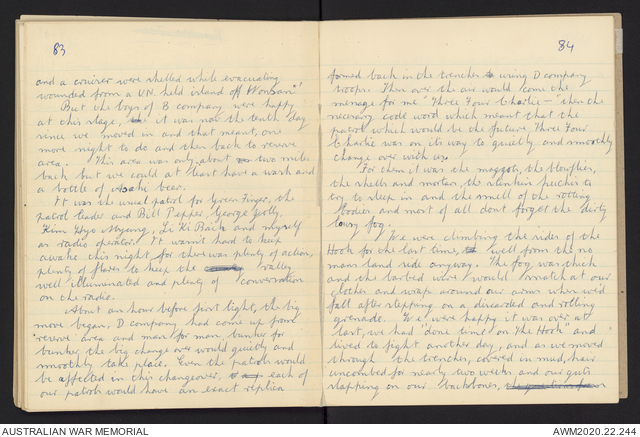 83
and a cruiser were shelled while evacuating
wounded from a U.N. held island off Wonsan."
But the boys of B. company were happy
at this stage, it was now the tenth day
since we moved in and that meant, one
more night to do and then back to reserve
area. This area was only about two miles
back but we could at least have a wash and
a bottle of Asahi beer.
It was the usual patrol for Green Finger, the
patrol leader and Bill Pepper, George Jolly,
Kim Hyo Myung, Li Ki Baik and myself
as radio operator. It wasn't hard to keep
awake this night for there was plenty of action,
plenty of flares to keep the valley
well illuminated and plenty of conversation
on the radio.
About an hour before first light, the big
move began, D company had come up from
reserve area and man for man, bunker for
bunker the big change over would quietly and
smoothly take place. Even the patrols would
be affected in this changeover, each of
our patrols would have an exact replica
84
formed back in the trenches using D company
troops. Then over the air would come the
message for me "Three Four Charlie - then the
necessary code word which meant that the
patrol which would be the future, Three Four
Charlie was on its way to quietly and smoothly
change over with us.
For them it was the maggots, the blowflies,
the shells and mortar, the stinkin hutchies
to sleep in and the smell of the rotting
bodies, and most of all dont forget the dirty
lousy fog.
We were climbing the sides of the
Hook for the last time, well from the no
mans land side anyway. The fog was thick
and the barbed wire would snatch at our
clothes and wrap around our arms when we'd
fall after slipping on a discarded and rotting
grenade. We were happy it was over at
last, we had "done time on The Hook" and
lived to fight another day, and as we moved
through the trenches, covered in mud, hair
uncombed for nearly two weeks and our guts
slapping on our backbones,
AUSTRALIAN WAR MEMORIAL
AWM2020.22.244